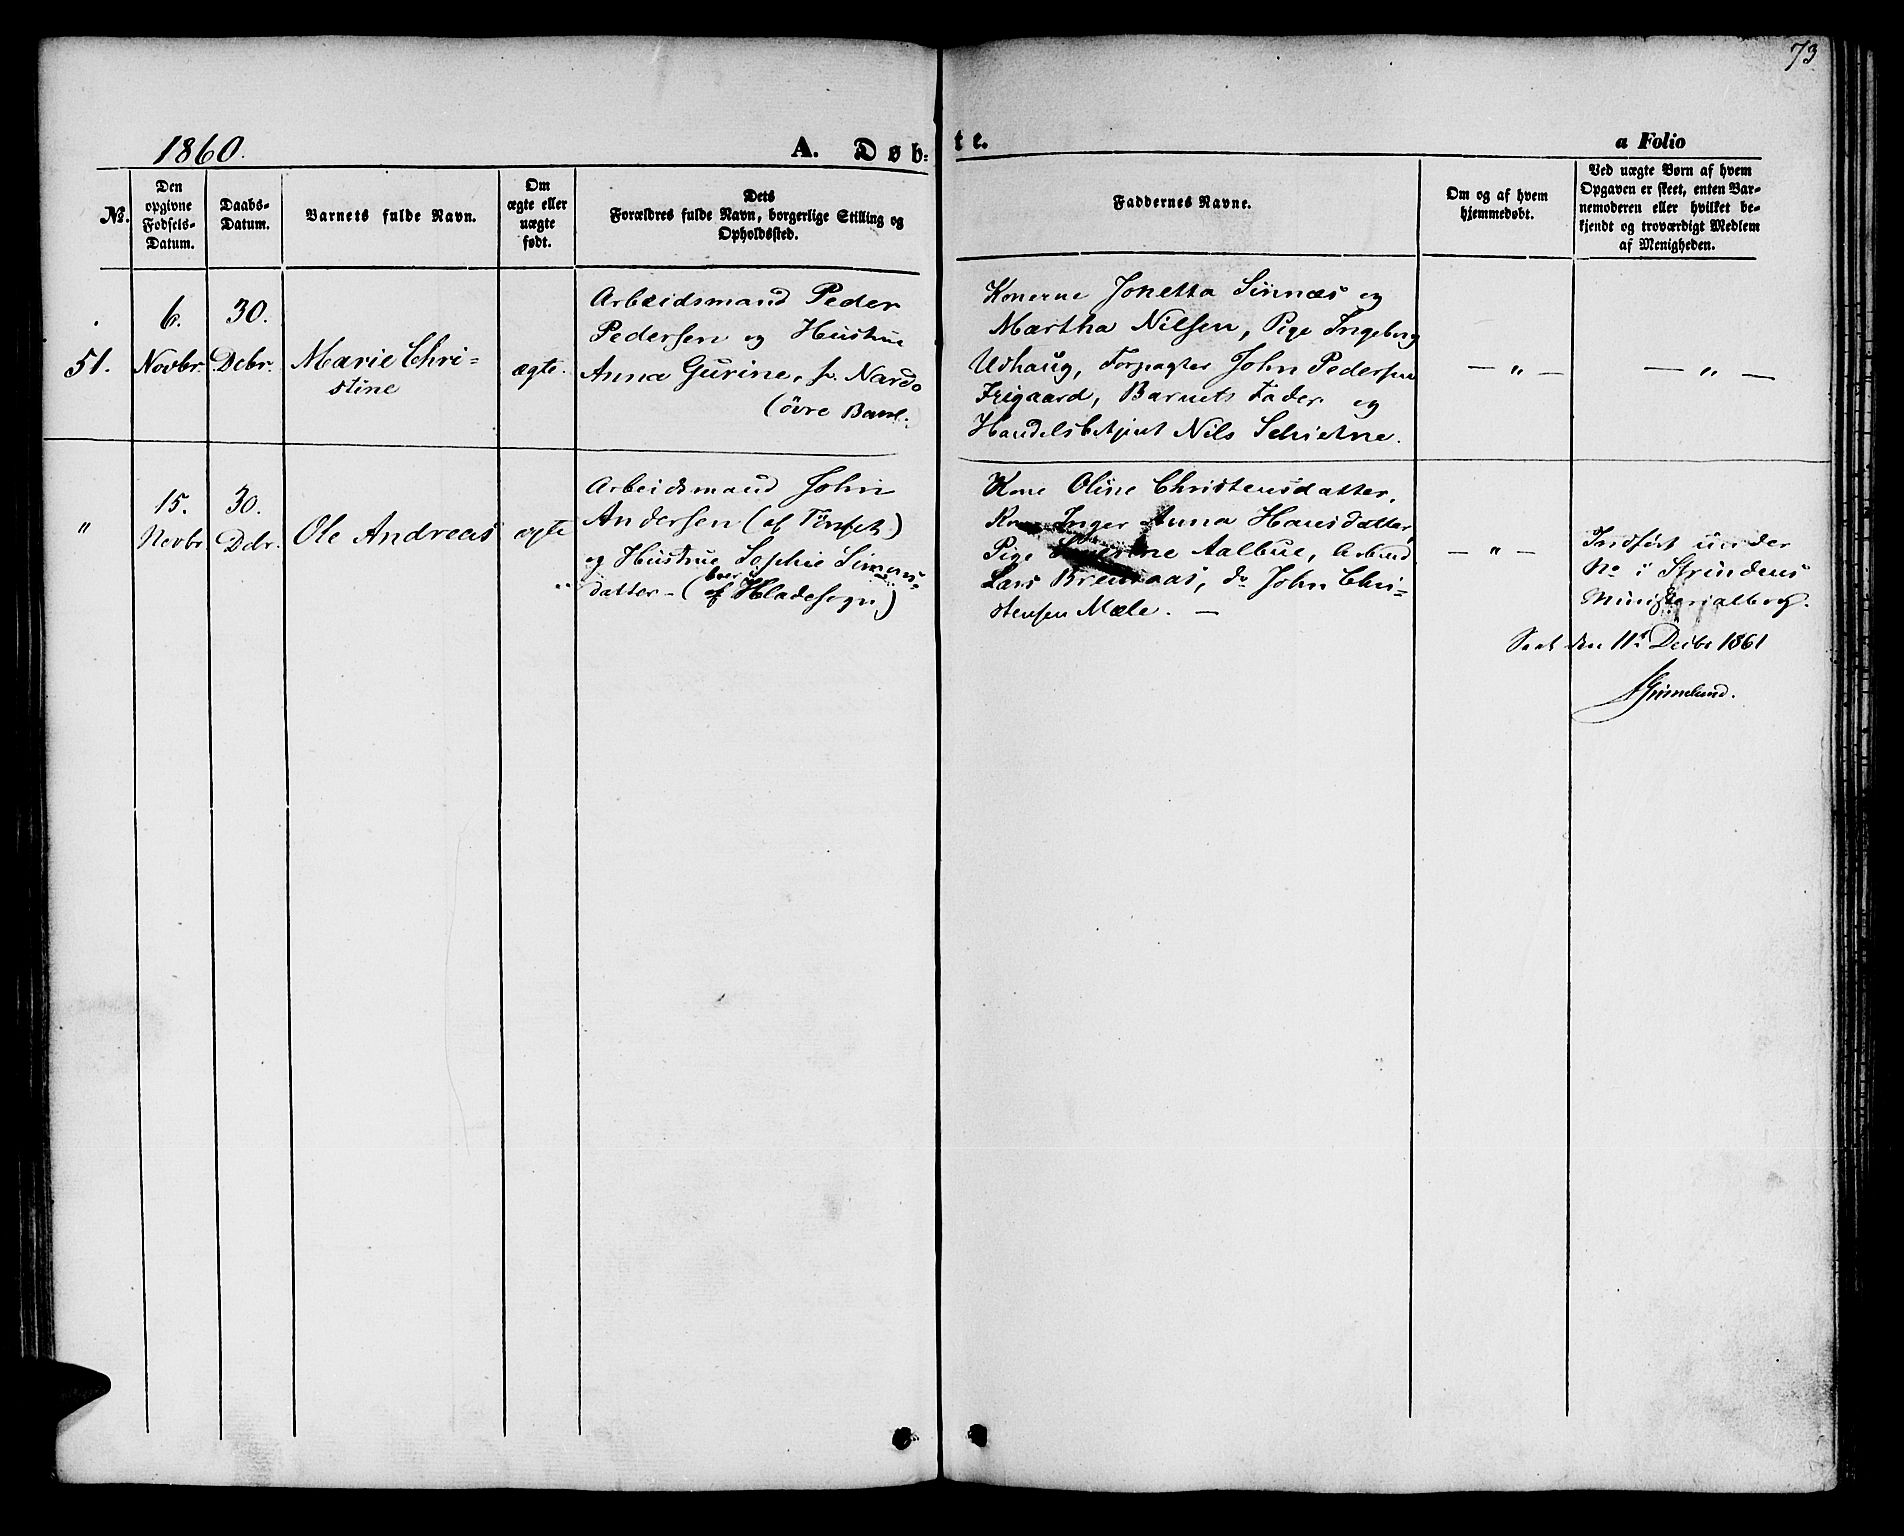 73
1860.
A. Døb:
te.
a Folio
№.
Den
opgivne
Fødsels-
Datum.
Daabs-
Datum.
Barnets fulde Navn.
Om
ægte eller
uægte
født.
Dets
Forældres fulde Navn, borgerlige Stilling og
Opholdssted.
Faddernes Navne.
Om og af hvem
hjemmedøbt.
Ved uægte Børn af hvem
Opgaven er skeet, enten Bar-
nemoderen eller hvilket be-
kjendt og troværdigt Medlem
af Menigheden.
51.
6.
Novbr.
30.
Dcbr.
Marie Chri-
stine
ægte.
Arbeidsmand Peder
Pedersen og Hustrue
Anna Gurine, f. Nardo
(övre Bakl.
Konerne Jonetta Sinnæs og
Martha Nilsen, Pige Ingeborg
Udhaug, Forpagter John Pedersen
Frigaard, Barnets Fader og
Handelsbetjent Nils Schietne.
— „ —
— „ —
"
15.
Novbr
30.
Dcbr.
Ole Andreas
ægte
Arbeidsmand John
Andersen (af Tönset)
og Hustrue Sophie Simons=
datter – (af Hladesogn)
Kone Oline Christensdatter,
Kone Inger Anna Hansdatter,
Pige Aalbue, Arbmd
Lars do John Chri=
stensen Mæle. —
— „ —
Indført under
No i Strindens
Ministerialbog.
den 11t Decbr 1861
Grimelund.